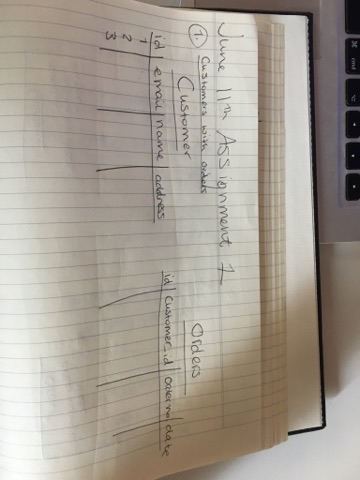 June 11th Assignment 1
1. Customers with orders
Customer
id | email | name | address
1
2
3
Orders
id | customer_id | order no | date